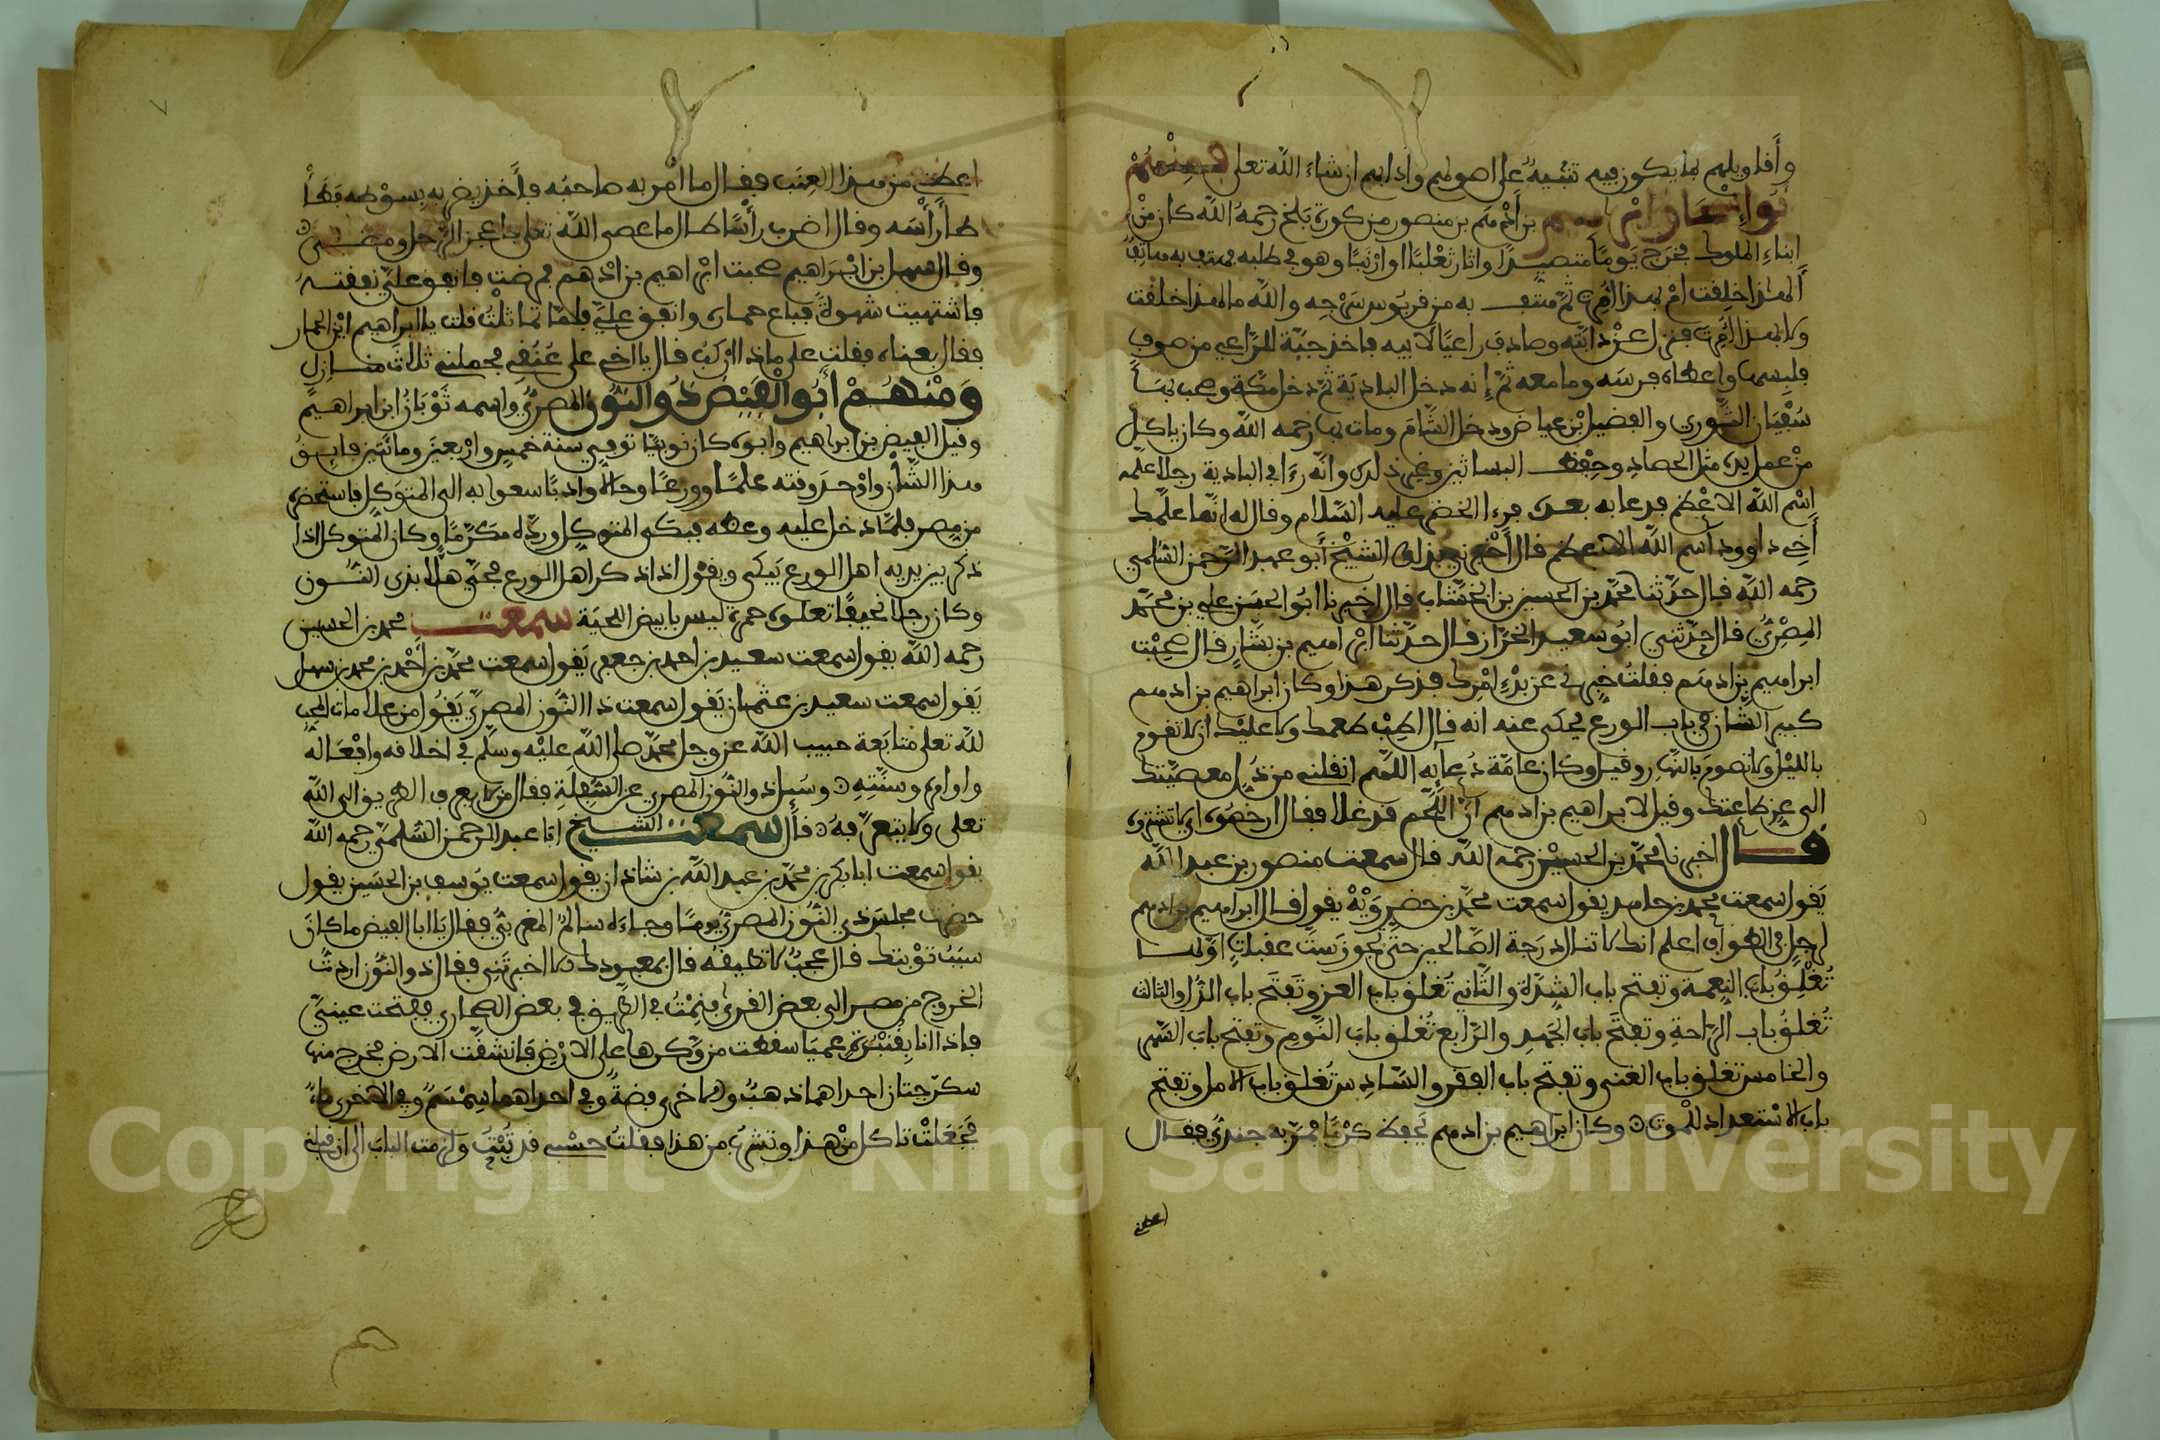 وأقاويلهم بما يكون فيه تنبيه على اصولهم وادابهم ان شاء الله تعلى فمنهم
ابو إسحاق ابرهيم بن أدهم بن منصور من كورة بلخ رحمه الله كان من
ابناء الملوك فخرج يوما متصيدا واثار ثعلبا او ارنبا وهو في طلبه فهتف به هاتف
ألهذا خلقت ام بهذا امرت ثم هتف به من قربوس سرجه والله ما لهذا خلقت
ولا بهذا امرت فنزل عن دابته وصادف راعيا لابيه فاخذ جبة للراعي من صوف
فلبسها واعطاه فرسه وما معه ثم إنه دخل البادية ثم دخل مكة وصحب بها
سفيان الثوري والفضيل بن عياض ودخل الشام ومات بها رحمه الله وكان ياكل
من عمل يده مثل الحصاد وحفظ البساتين وغير ذلك وانه رءا في البادية رجلا علمه
اسم الله الاعظم فدعا به بعده فرءا الخضر عليه السلام وقال له انما علمك
أخي داوود اسم الله الاعظم قال أخبرني بذلك الشيخ أبو عبد الرحمن السلمي
رحمه الله قال حدثنا محمد بن الحسين بن الخشاب قال اخبرنا ابو الحسن علي بن محمد
المصري قال حدثني ابو سعيد الخراز قال حدثنا ابرهيم بن بشار قال صحبت
ابراهيم بن ادهم فقلت خبرني عن بدء امرك فذكر هذا وكان ابراهيم بن ادهم
كبير الشان في باب الورع يحكى عنه انه قال اطب مطعمك ولا عليك ان لا تقوم
بالليل ولا تصوم بالنهار وقيل وكان عامة دعايه اللهم انقلني من ذل معصيتك
الى عز طاعتك وقيل لابراهيم بن ادهم ان اللحم قد غلا فقال ارخصوه اي لا تشتروه
قال اخبرنا محمد بن الحسين رحمه الله قال سمعت منصور بن عبد الله
يقول سمعت محمد بن حامد يقول سمعت محمد بن خضرويه يقول قال ابراهيم بن ادهم
لرجل في الطواف اعلم انك لا تنال درجة الصالحين حتى تجوز ست عقبات اولها
تغلق باب النعمة وتفتح باب الشدة والثاني تغلق باب العز وتفتح باب الذل والثالث
تغلق باب الراحة وتفتح باب الجهد والرابع تغلق باب النوم وتفتح باب السهر
والخامس تغلق باب الغنى وتفتح باب الفقر والسادس تغلق باب الامل وتفتح
باب الاستعداد للموت وكان ابراهيم بن ادهم يحفظ كرما فمر به جندي فقال
اعطني
اعطني من هذا العنب فقال ما امر به صاحبه فأخذ يضربه بسوطه فطأ
طأ رأسه وقال اضرب رأسا طال ما عصى الله تعلى فاعجز الرجل ومضى
وقال سهل بن ابراهيم صحبت ابراهيم بن ادهم فمرضت فانفق علي نفقته
فاشتهيت شهوة فباع حماره وانفق علي فلما تماثلت قلت يا ابراهيم اين الحمار
فقال بعناه فقلت على ماذا اركب قال يا اخي على عنقي فحملني ثلاث منازل
ومنهم أبو الفيض ذو النون المصري واسمه ثوبان ابن ابراهيم
وقيل الفيض بن ابراهيم وابوه كان نوبيا توفي سنة خمس واربعين ومائتين فايق
هذا الشأن واوحد وقته علما وورعا وحالا وادبا سعوا به الى المتوكل فاستحضره
من مصر فلما دخل عليه وعظه فبكى المتوكل ورده مكرما وكان المتوكل اذا
ذكر بين يديه اهل الورع يبكي ويقول اذا ذكر اهل الورع فحي هلا بذي النون
وكان رجلا نحيفا تعلوه حمرة ليس بابيض اللحية سمعت محمد بن الحسين
رحمه الله يقول سمعت سعيد بن احمد بن جعفر يقول سمعت محمد بن أحمد بن محمد بن سهل
يقول سمعت سعيد بن عثمان يقول سمعت ذا النون المصري يقول من علامات المحب
لله تعلى متابعة حبيب الله عز وجل محمد صلى الله عليه وسلم في اخلاقه وافعاله
واوامره وسنته وسئل ذو النون المصري عن السفلة فقال من لا يعرف الطريق الى الله
تعلى ولا يتعرفه قال سمعت الشيخ ابا عبد الرحمن السلمي رحمه الله
يقول سمعت ابا بكر بن محمد بن عبد الله بن شاذان يقول سمعت يوسف بن الحسين يقول
حضرت مجلس ذي النون المصري يوما وجاءه سالم المغربي فقال يا ابا الفيض ما كان
سبب توبتك قال عجب لا تطيقه قال بمعبودك الا اخبرتني فقال ذو النون اردت
الخروج من مصر الى بعض القرى فنمت في الطريق في بعض الصحاري ففتحت عيني
فاذا انا بقنبرة عميا سقطت من وكرها على الارض فانشقت الارض فخرج منها
سكرجتان احداهما ذهب والاخرى فضة وفي احداهما سمسم وفي الاخرى ماء
فجعلت تاكل من هذا وتشرب من هذا فقلت حسبي قد تبت ولزمت الباب الى ان قبلني
Copyright © King Saud University